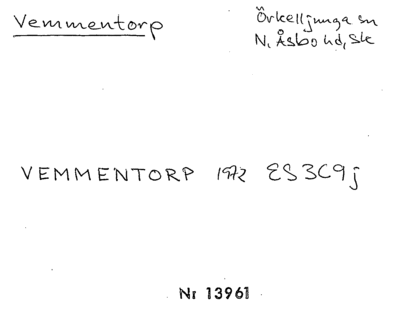 Vemmentorp
Örkelljunga sn
N. Åsbo hd, Sk
VEMMENTORP 1972 ES3C9j
Nr 13961